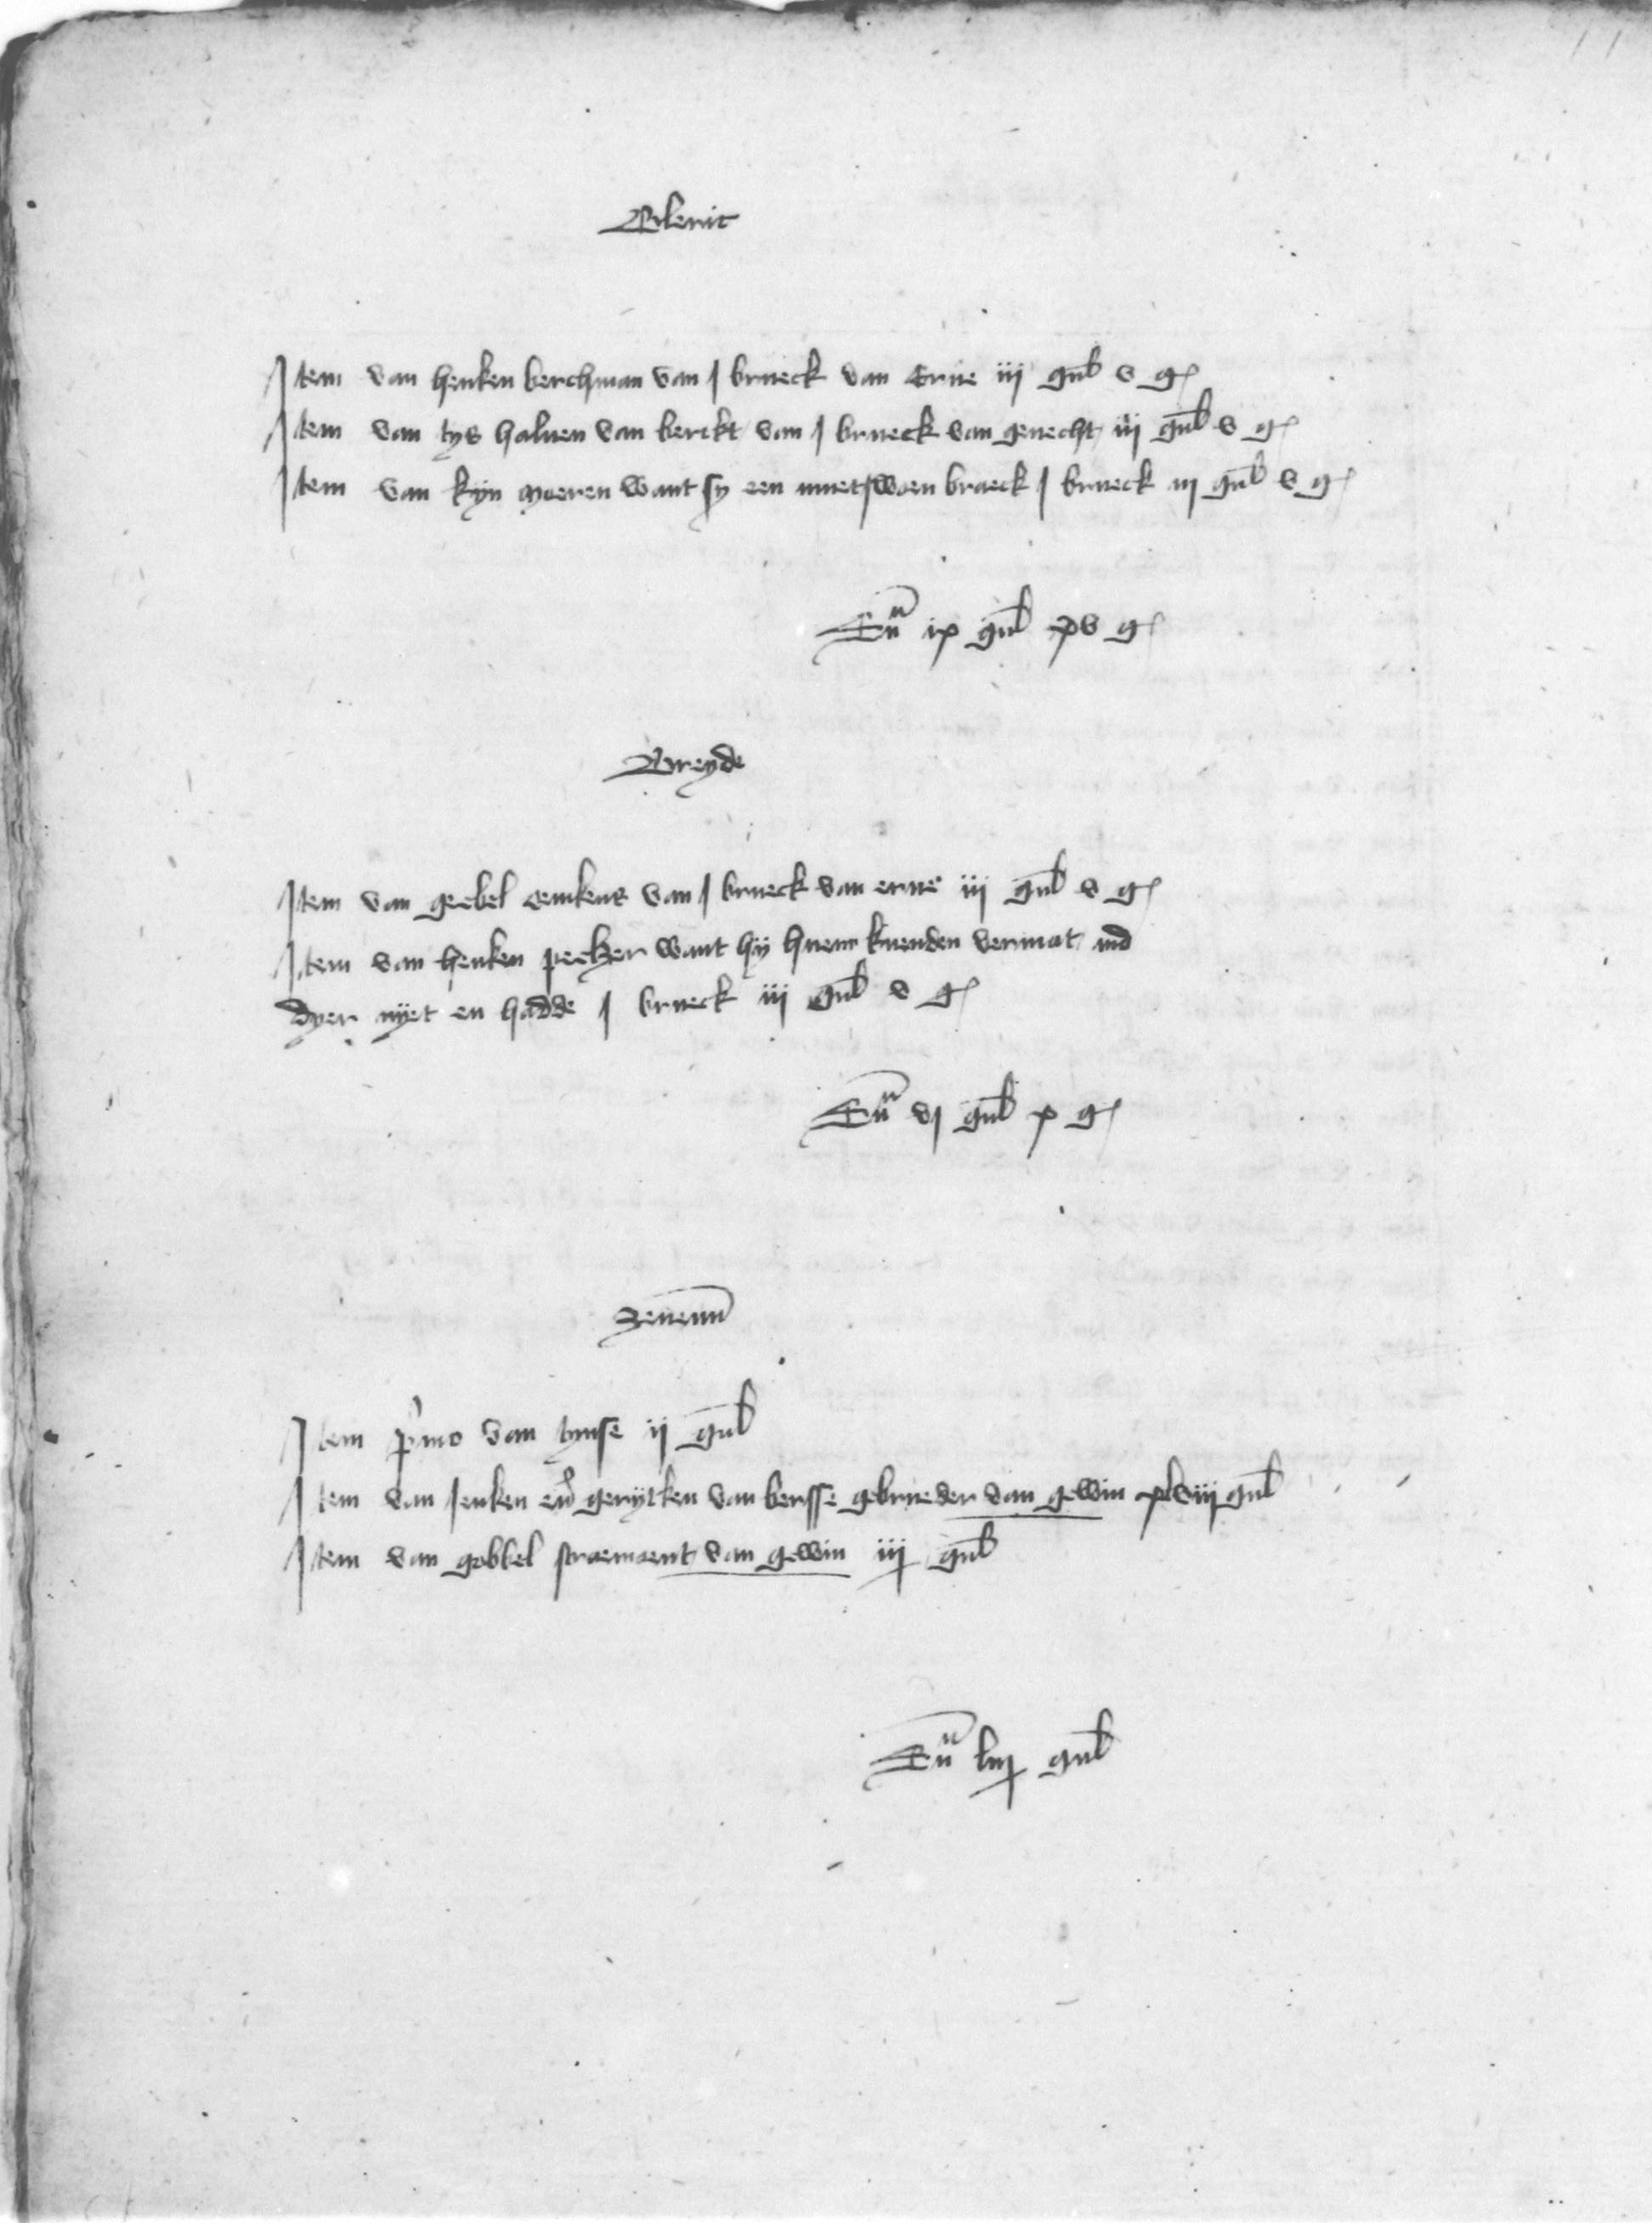 Blerik
Item van henken berchman van j brueck van Erue iij gul v g
Item van tys haluen van berckt van j brueck van gerecht iij gul v g
Item van kyn moeren want sy een braeck j brueck iij gul v g
Sum ix gul xv g
Breyde
Item van geebel lemkens van j brueck van erue iij gul v g
Item van henken peelzer want hy hem kuenden vermat ind
dyer nyet en hadde j brueck iij gul v g
Sum vj gul x g
Zeuenum
Item primo van tynse ij gul
Item van Jenken end gerytken van bersse gebrueder van gewin xlviij gul
Item van gobbel van gewin iij gul
Sum liij gul